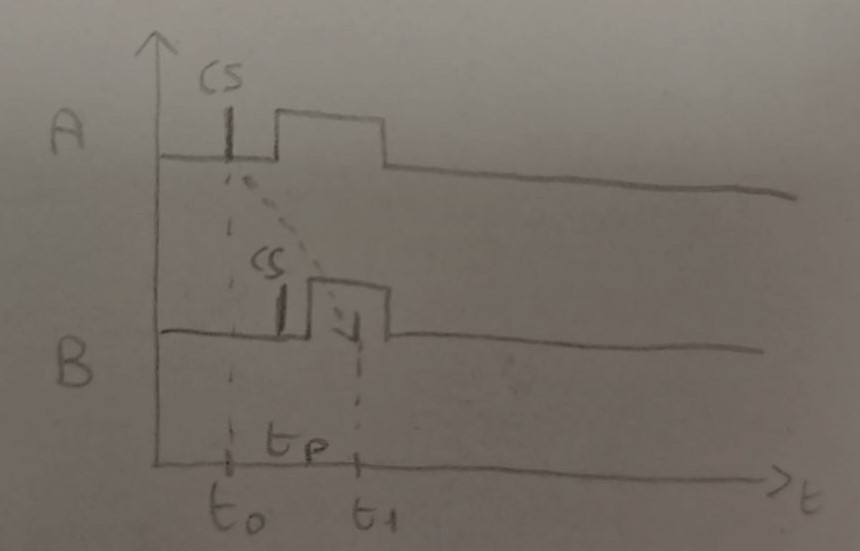 CS
A
CS
B
tp
t0 t1 t